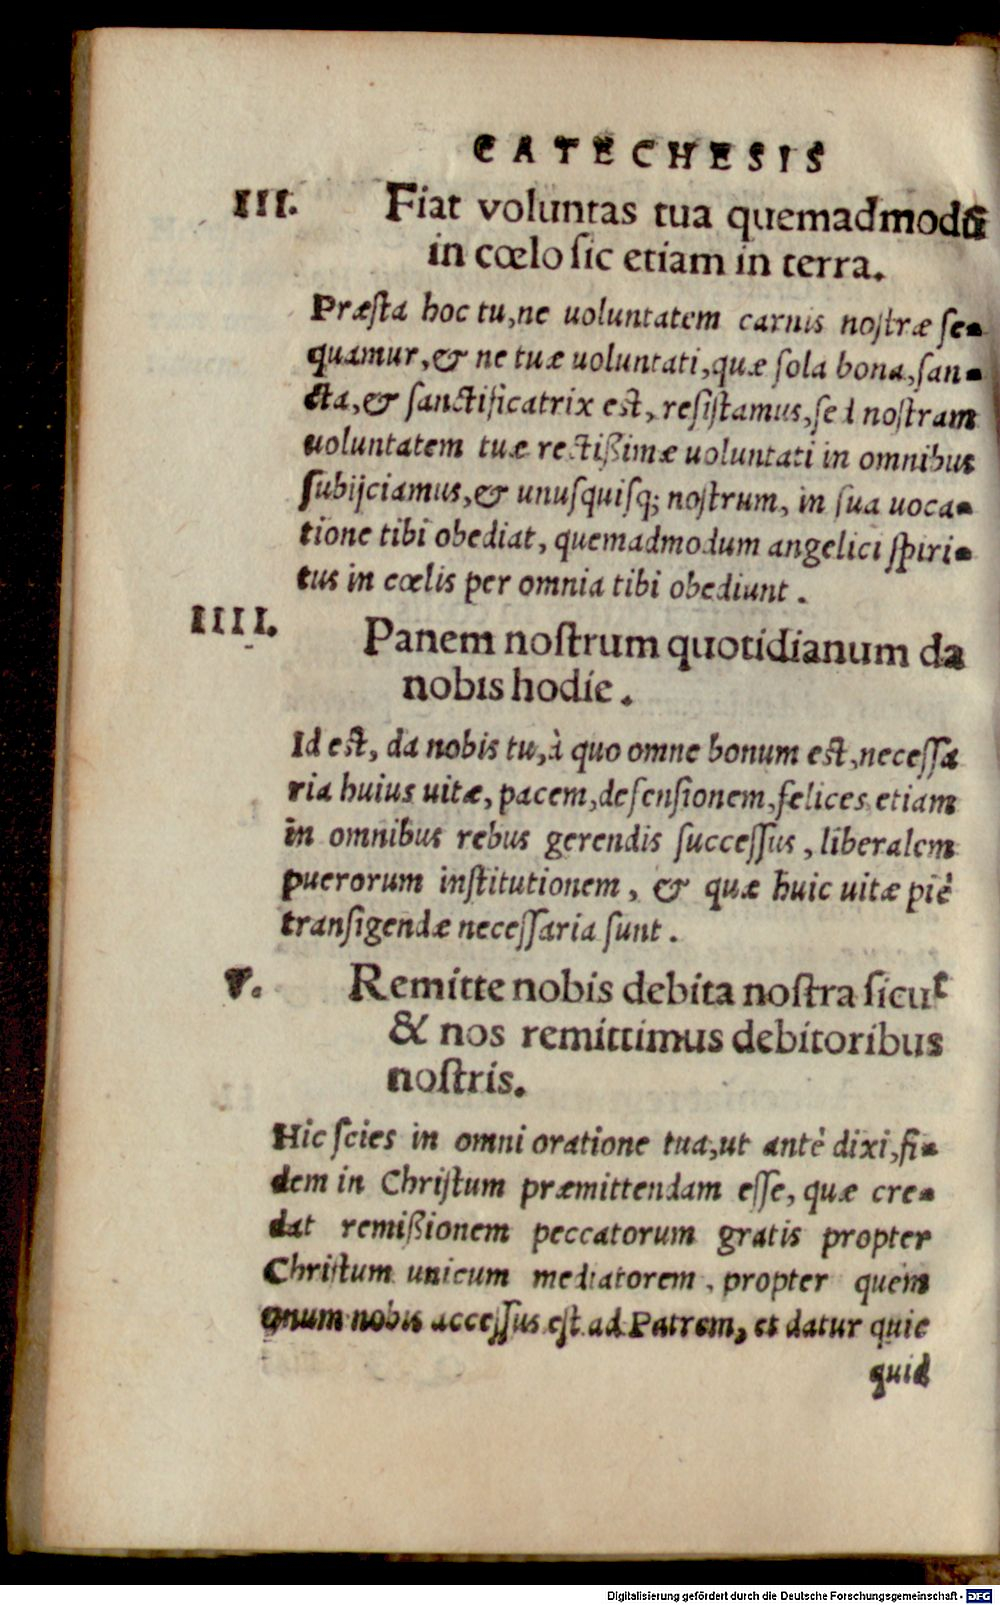 CATECHESIS
III. Fiat voluntas tua quemadmodũ
in cœlo ſic etiam in terra.
Præſta hoc tu, ne uoluntatem carnis noſtræ ſe-
quamur, & ne tuæ uoluntati, quæ ſola bona, ſan-
cta, & ſanctificatrix eſt, reſiſtamus, ſed noſtram
uoluntatem tuæ rectißimæ uoluntati in omnibus
ſubijciamus, & unuſquiſq; noſtrum, in ſua uoca-
tione tibi obediat, quemadmodum angelici ſpiri-
tus in cœlis per omnia tibi obediunt.
IIII. Panem noſtrum quotidianum da
nobis hodie.
Id eſt, da nobis tu, à quo omne bonum eſt, neceſſa
ria huius uitæ, pacem, defenſionem, felices etiam
in omnibus rebus gerendis ſucceſſus, liberalem
puerorum inſtitutionem, & quæ huic uitæ piè
tranſigendæ neceſſaria ſunt.
V. Remitte nobis debita noſtra ſicut
& nos remittimus debitoribus
noſtris.
Hic ſcies in omni oratione tua, ut antè dixi, fi-
dem in Chriſtum præmittendam eſſe, quæ cre-
dat remißionem peccatorum gratis propter
Chriſtum unicum mediatorem, propter quem
unum nobis acceſſus eſt ad Patrem, et datur quic
quid
Digitalisierung gefördert durch die Deutsche Forschungsgemeinschaft - DFG